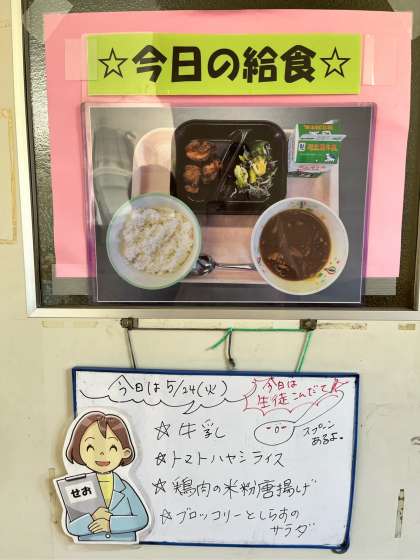 ☆今日の給食☆
今日は5/24(火)
今日は
生徒こんだて
スプーン
あるよ。
☆牛乳
☆トマトハヤシライス
☆鶏肉の米粉唐揚げ
☆ブロッコリーとしらすの
サラダ
せお